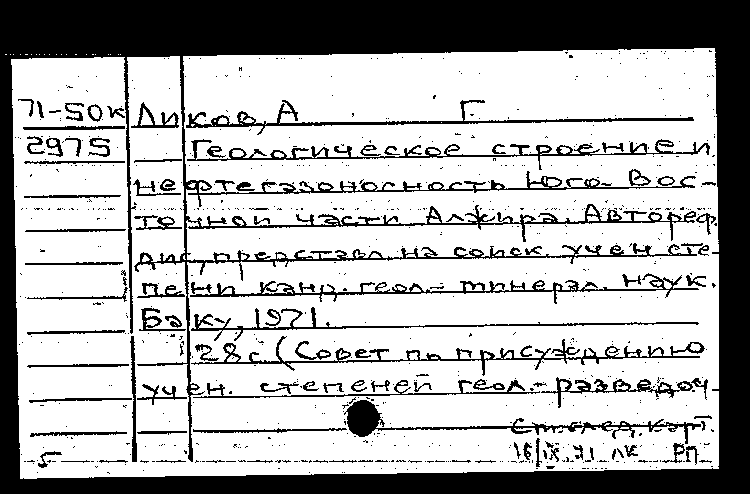 71-50к Ликов, А Г
2975 Геологическое строение и
нефтегазоносность Юго-Вос-
точной части Алжира. Автореф.
дис, представл. на соиск. учен сте-
пени канд. геол.-минерал. наук.
Баку, 1971.
28с (Совет по присуждению
учен. степеней геол.-разведоч-
См.след.карт.
16/IX 71 ЛК РП
5